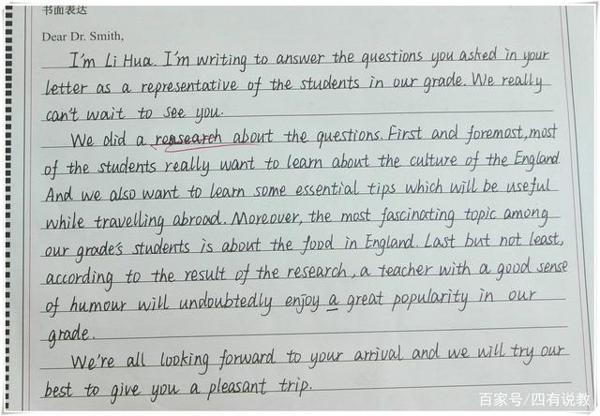 书面表达
Dear Dr. Smith,
I'm Li Hua. I'm writing to answer the questions you asked in your
letter as a representative of the students in our grade. We really
can't wait to see you.
We did a research about the questions. First and foremost, most
of the students really want to learn about the culture of the England.
And we also want to learn some essential tips which will be useful
while travelling abroad. Moreover, the most fascinating topic among
our grade's students is about the food in England. Last but not least,
according to the result of the research, a teacher with a good sense
of humour will undoubtedly enjoy a great popularity in our
grade.
We're all looking forward to your arrival and we will try our
best to give you a pleasant trip.
百家号/四有说教